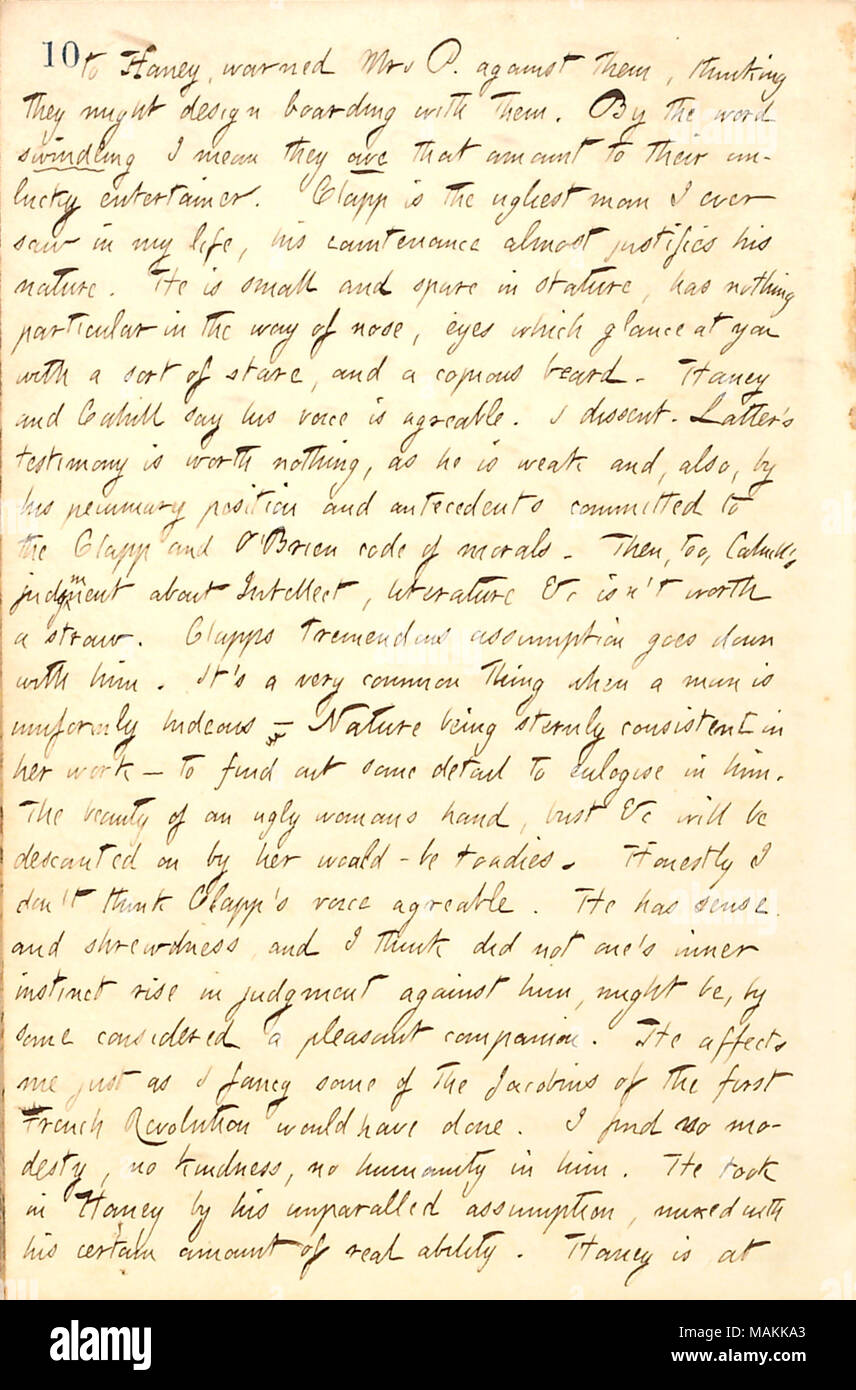 10
to Haney, warned Mrs P. against them, thinking
they might design boarding with them. By the word
swindling I mean they owe that amount to their un-
lucky entertainer. Clapp is the ugliest man I ever
saw in my life, his countenance almost justifies his
nature. He is small and spare in stature, has nothing
particular in the way of nose, eyes which glance at you
with a sort of stare, and a copious beard. Haney
and Cahill say his voice is agreable. I dissent. Latter's
testimony is worth nothing, as he is weak and, also, by
his pecuniary position and antecedents committed to
the Clapp and O'Brien code of morals. Then, too, Cahill's
judgment about Intellect, literature &c isn't worth
a straw. Clapps tremendous assumption goes down
with him. It's a very common thing when a man is
uniformly hideous — Nature being sternly consistent in
her work — to find out some detail to eulogise in him.
The beauty of an ugly womans hand, bust &c will be
descanted on by her would-be toadies. Honestly I
don't think Clapp's voice agreable. He has sense
and shrewdness, and I think did not one's inner
instinct rise in judgment against him, might be, by
some considered a pleasant companion. He affects
me just as I fancy some of the Jacobins of the first
French Revolution would have done. I find no mo-
desty, no kindness, no humanity in him. He took
in Haney by his unparalled assumption, mixed with
his certain amount of real ability. Haney is at
alamy
Image ID: MAKKA3
www.alamy.com